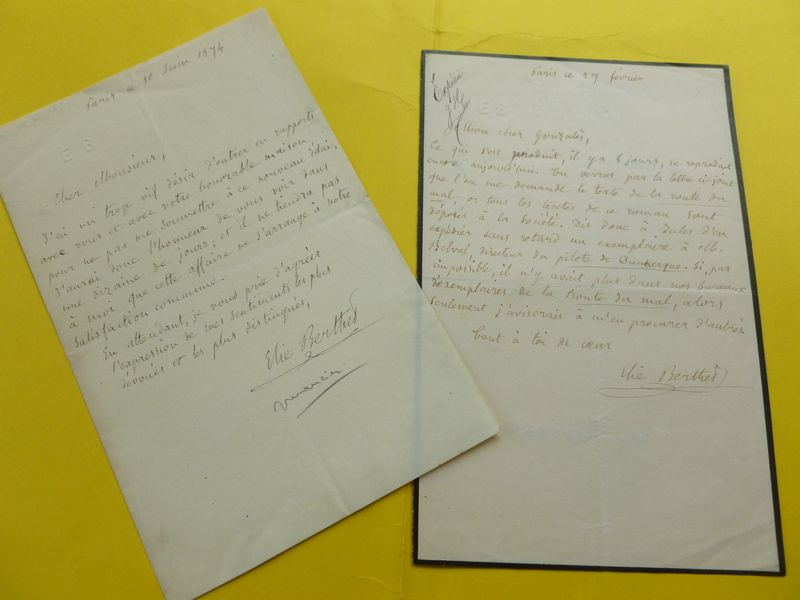 Paris ce 10 Juin 1874
E B
Cher Monsieur,
J'ai un trop vif désir d'entrer en rapports
avec vous et avec votre honorable maison,
pour ne pas me soumettre à ce nouveau délai.
J'aurai donc l'honneur de vous voir dans
une dizaine de jours; et il ne tiendra pas
à moi que cette affaire ne s'arrange à notre
satisfaction commune.
En attendant, je vous prie d'agréer
l'expression de mes sentiments les plus
dévoués et les plus distingués,
Elie Berthet
Paris ce 27 février
E B
Mon cher Gonzalès,
Ce qui s'est produit, il y a 5 jours, se reproduit
encore aujourd'hui. Tu verras par la lettre ci-joint
que l'on me demande le texte de la route du
mal; or tous les textes de ce roman sont
déposés à la Société. Dis donc à Jules d'en
expédier sans retard un exemplaire à M.
directeur du pilote de Dunkerque. Si, par
impossible, il n'y avait plus dans nos bureaux
d'exemplaires de la Route du mal, alors
seulement j'aviserais à m'en procurer d'autres.
tout à toi de cœur
Elie Berthet